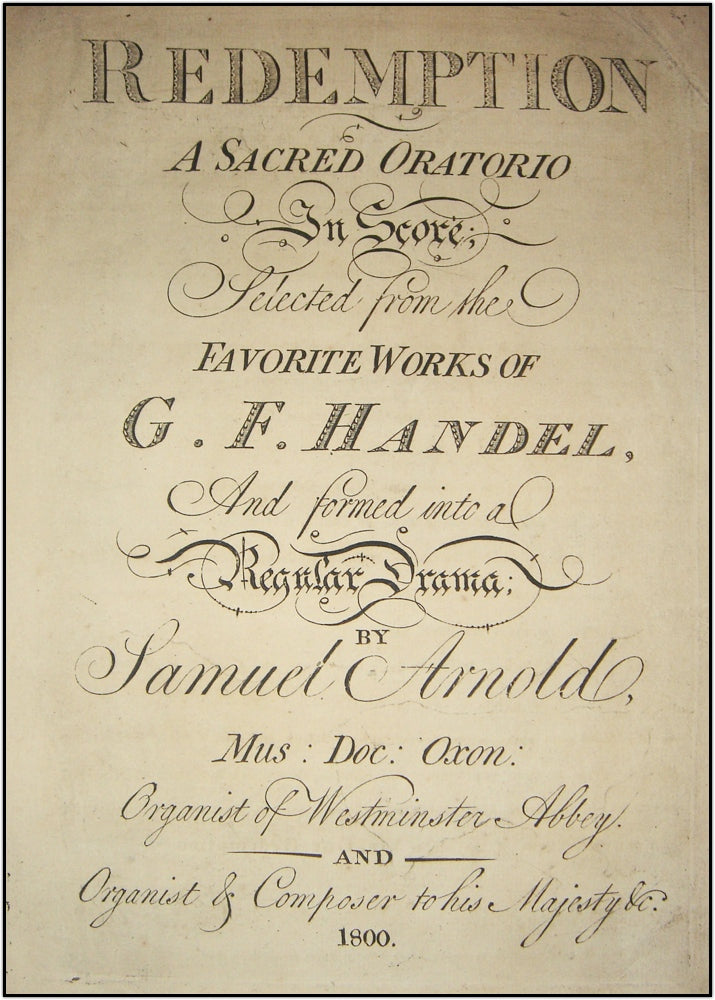 REDEMPTION
A SACRED ORATORIO
In Score;
Selected from the
FAVORITE WORKS OF
G. F. HANDEL,
And formed into a
Regular Drama;
BY
Samuel Arnold,
Mus: Doc: Oxon:
Organist of Westminster Abbey.
AND
Organist & Composer to his Majesty &c.
1800.